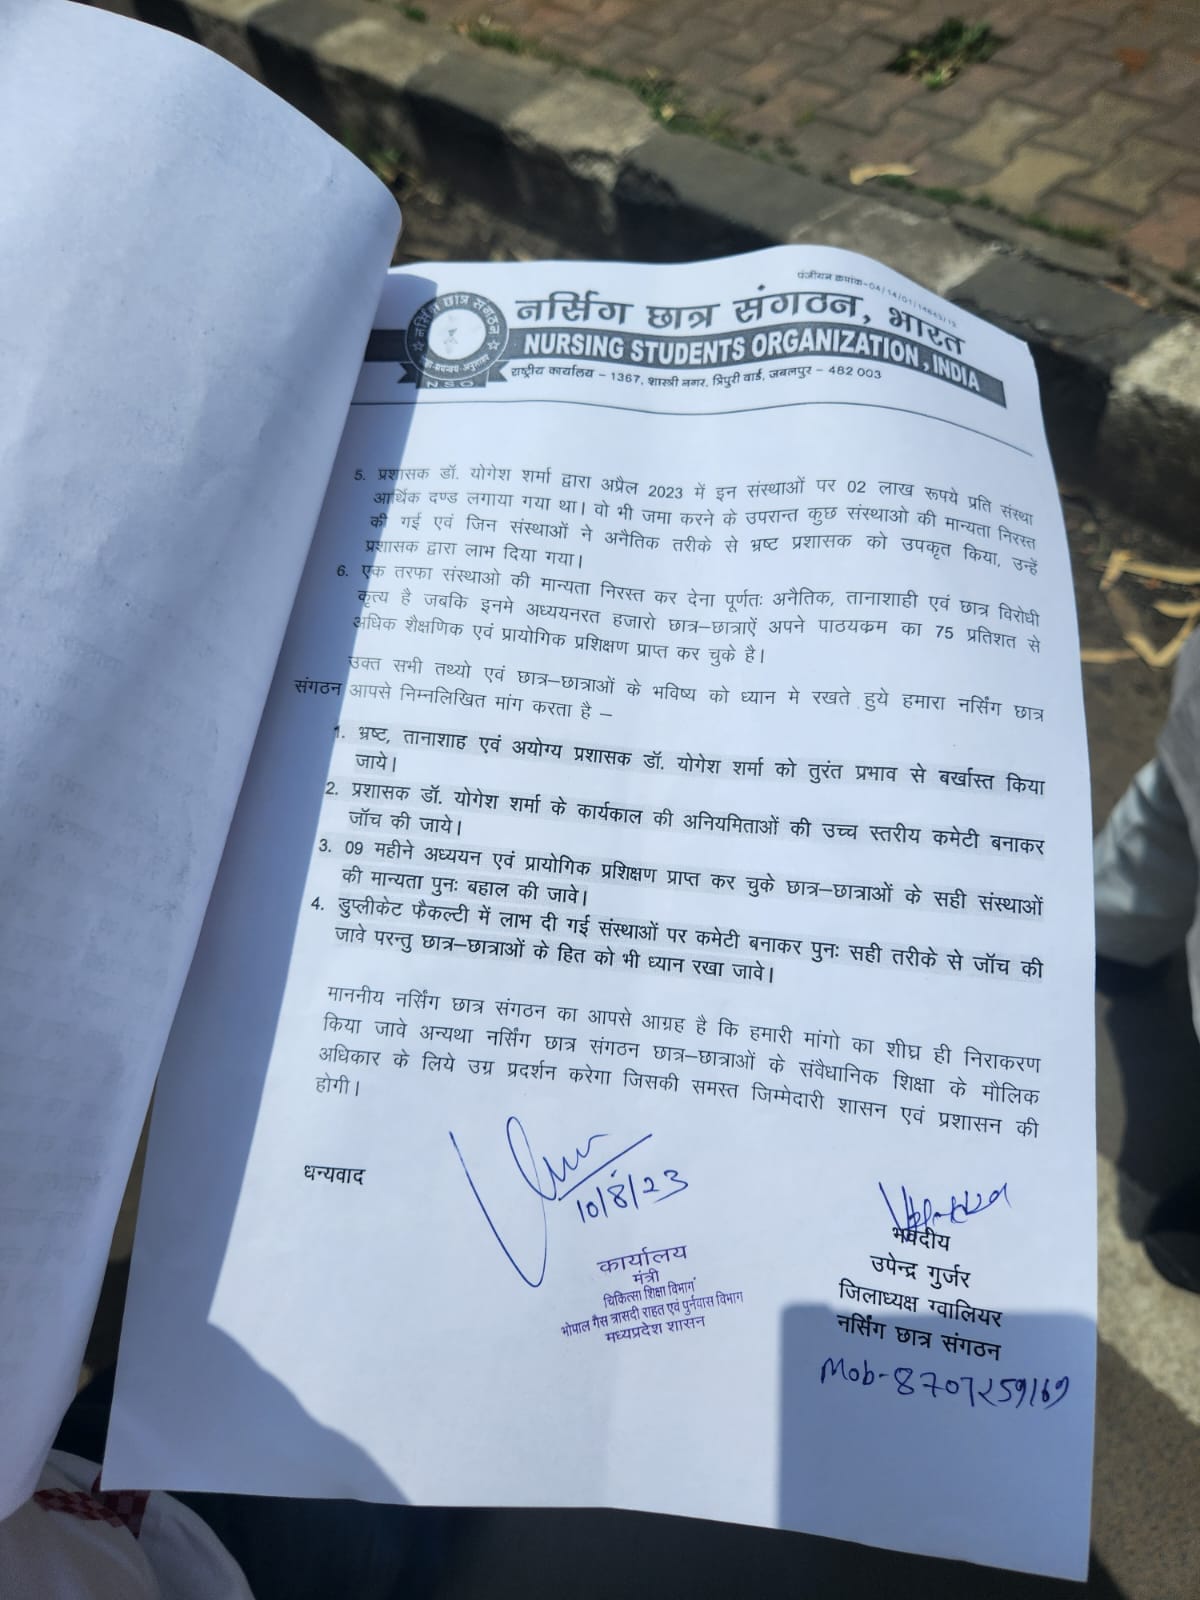 पंजीयन क्रमांक-04/14/01/14643/12
नर्सिंग छात्र संगठन, भारत
NURSING STUDENTS ORGANIZATION, INDIA
राष्ट्रीय कार्यालय – 1367, शास्त्री नगर, त्रिपुरी वार्ड, जबलपुर – 482 003
नर्सिंग छात्र संगठन
NSO
5. प्रशासक डॉ. योगेश शर्मा द्वारा अप्रैल 2023 में इन संस्थाओं पर 02 लाख रूपये प्रति संस्था
आर्थिक दण्ड लगाया गया था। वो भी जमा करने के उपरान्त कुछ संस्थाओ की मान्यता निरस्त
की गई एवं जिन संस्थाओं ने अनैतिक तरीके से भ्रष्ट प्रशासक को उपकृत किया, उन्हें
प्रशासक द्वारा लाभ दिया गया।
6. एक तरफा संस्थाओ की मान्यता निरस्त कर देना पूर्णतः अनैतिक, तानाशाही एवं छात्र विरोधी
कृत्य है जबकि इनमे अध्ययनरत हजारो छात्र–छात्राऐं अपने पाठयक्रम का 75 प्रतिशत से
अधिक शैक्षणिक एवं प्रायोगिक प्रशिक्षण प्राप्त कर चुके है।
उक्त सभी तथ्यो एवं छात्र–छात्राओं के भविष्य को ध्यान मे रखते हुये हमारा नर्सिंग छात्र
संगठन आपसे निम्नलिखित मांग करता है –
1. भ्रष्ट, तानाशाह एवं अयोग्य प्रशासक डॉ. योगेश शर्मा को तुरंत प्रभाव से बर्खास्त किया
जाये।
2. प्रशासक डॉ. योगेश शर्मा के कार्यकाल की अनियमिताओं की उच्च स्तरीय कमेटी बनाकर
जॉच की जाये।
3. 09 महीने अध्ययन एवं प्रायोगिक प्रशिक्षण प्राप्त कर चुके छात्र–छात्राओं के सही संस्थाओं
की मान्यता पुनः बहाल की जावे।
4. डुप्लीकेट फैकल्टी में लाभ दी गई संस्थाओं पर कमेटी बनाकर पुनः सही तरीके से जॉच की
जावे परन्तु छात्र–छात्राओं के हित को भी ध्यान रखा जावे।
माननीय नर्सिंग छात्र संगठन का आपसे आग्रह है कि हमारी मांगो का शीघ्र ही निराकरण
किया जावे अन्यथा नर्सिंग छात्र संगठन छात्र–छात्राओं के संवैधानिक शिक्षा के मौलिक
अधिकार के लिये उग्र प्रदर्शन करेगा जिसकी समस्त जिम्मेदारी शासन एवं प्रशासन की
होगी।
धन्यवाद
10/8/23
कार्यालय
मंत्री
चिकित्सा शिक्षा विभाग
भोपाल गैस त्रासदी राहत एवं पुर्नवास विभाग
मध्यप्रदेश शासन
भवदीय
उपेन्द्र गुर्जर
जिलाध्यक्ष ग्वालियर
नर्सिंग छात्र संगठन
Mob-8707259169